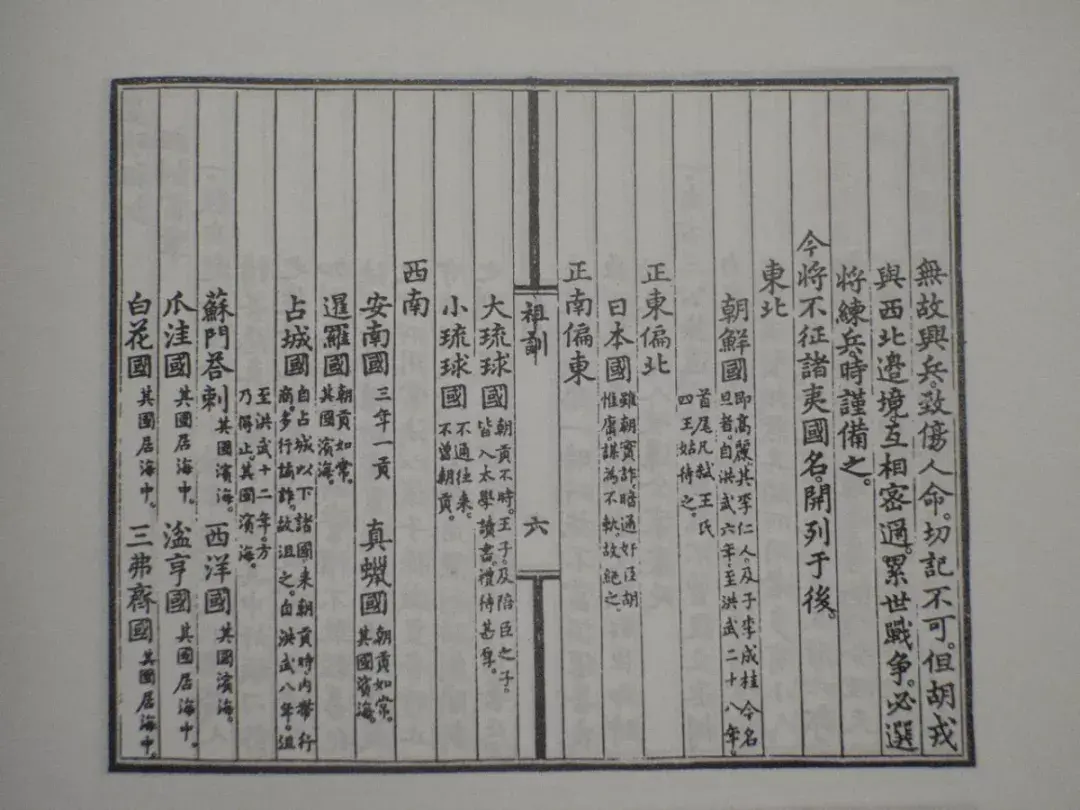 無故興兵。致傷人命。切記不可。但胡戎
與西北邊境。互相密邇。累世戰爭。必選
將練兵。時謹備之。
今將不征諸夷國名。開列于後。
東北
朝鮮國 即高麗。其李仁人。及子李成桂今名
旦者。自洪武六年。至洪武二十八年。
首尾凡弒王氏
四王姑待之。
正東偏北
日本國 雖朝實詐。暗通奸臣胡
惟庸。謀為不軌。故絕之。
正南偏東
祖訓 六
大琉球國 朝貢不時。王子。及陪臣之子。
皆入太學讀書。禮待甚厚。
小琉球國 不通往來。
不曾朝貢。
西南
安南國 三年一貢 真蠟國 朝貢如常。其國濱海。
暹羅國 朝貢如常。其國濱海。
占城國 自占城以下諸國。來朝貢時。內帶行
商。多行譎詐。故沮之。自洪武八年。沮
至洪武十二年。方
乃得止其國濱海。
蘇門荅剌 其國濱海。 西洋國 其國濱海。
爪洼國 其國居海中。 湓亨國 其國居海中。
白花國 其國居海中。 三弗齊國 其國居海中。